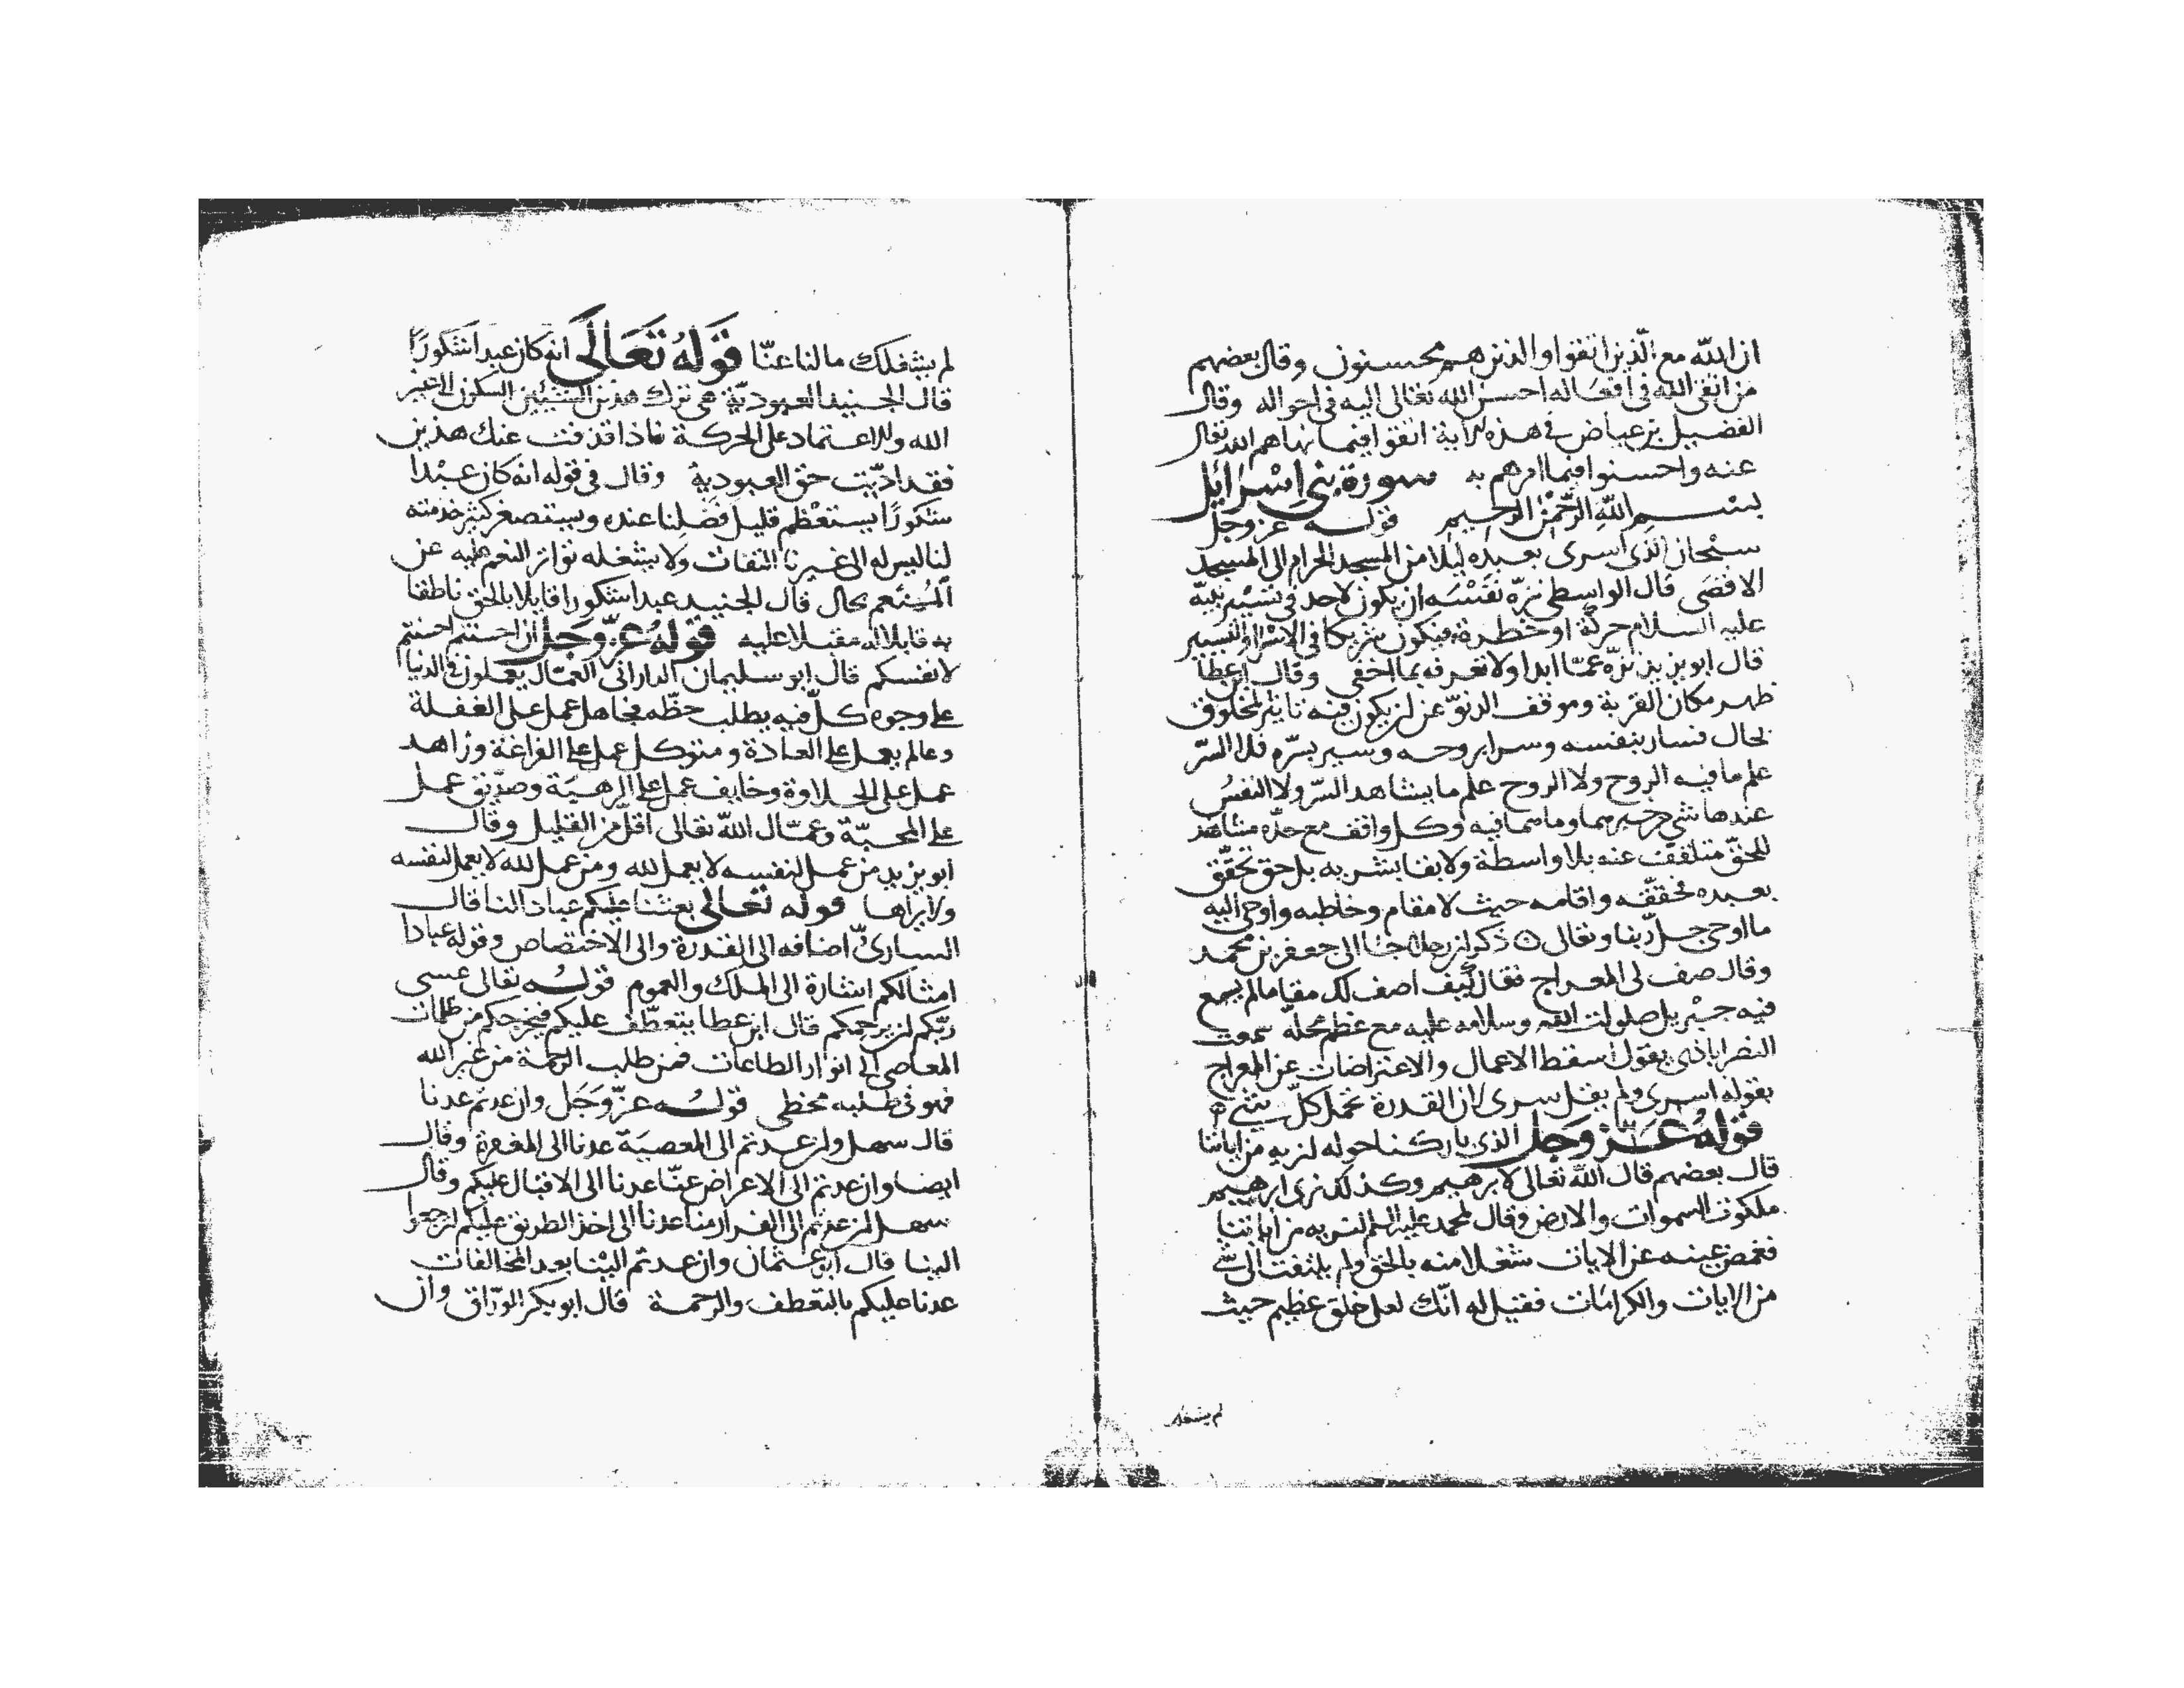 ان الله مع الذين اتقوا والذين هم محسنون وقال بعضهم
من اتقى الله في افعاله احسن الله تعالى اليه في احواله وقال
الفضيل بن عياض في هذه الاية اتقوا فيما نهاهم الله تعالى
عنه واحسنوا فيما امرهم به سورة بني اسرائل
بسم الله الرحمن الرحيم قوله عز وجل
سبحان الذي اسرى بعبده ليلا من المسجد الحرام الى المسجد
الاقصى قال الواسطي نزّه نفسه ان يكون لاحد في تسيير نبيّه
عليه السلام حركة او خطرة فيكون شريكا في الاسرا والتسيير
قال ابو يزيد نزّه عمّا ابدا ولا تعرفه بما اخفى وقال ابن عطا
طهر مكان القربة وموقف الدنوّ عن ان يكون فيه تاثير لمخلوق
بحال فسار بنفسه وسرا بروحه وسير بسرّه فلا السرّ
علم ما فيه الروح ولا الروح علم ما يشاهد السرّ ولا النفسُ
عندها شي من خبرهما وما هما فيه وكل واقف مع حدّه مشاهد
للحقّ متلقف عنه بلا واسطة ولا بقا بشريه بل حق تحقّق
بعبده فحققّه واقامه حيث لا مقام وخاطبه واوحى اليه
ما اوحى جل ربنا وتعالى ذكر ان رجلا جا الى جعفر بن محمد
وقال صف لى المعراج فقال كيف اصف لك مقاما لم يسع
فيه جبريل صلوات الله وسلامه عليه مع عظم محلّه سمعت
النصراباذي يقول اسقط الاعمال والاعتراضات عن المعراج
بقوله اسرى ولم يقل سرى لان القدرة تحمل كلّ شيء
قوله عز وجل الذى باركنا حوله لنريه من اياتنا
قال بعضهم قال الله تعالى لابرهيم وكذلك نرى ابرهيم
ملكوت السموات والارض وقال لمحمد عليه السلم لنريه من اياتنا
فغمض عينه عن الايات شغلا منه بالحق ولم يلتفت الى شي
من الايات والكرامات فقيل له انّك لعلى خلق عظيم حيث
لم يشغلك
لم يشغلك ما لنا عنّا قوله تعالى انه كان عبدا شكورًا
قال الجنيد العبوديّة هى ترك هذين الشيئين السكون الى غير
الله والاعتماد على الحركة فاذا قذفت عنك هذين
فقد ادّيت حق العبودية وقال فى قوله انه كان عبْدا
شكورًا يستعظم قليل فضلنا عنده ويستصغر كثير خدمته
لنا ليس له الى غيرنا التفات ولا يشغله تواتر النعم عليه عن
المُنعم بحال قال الجنيد عبدا شكورا قايلا بالحق ناطقا
به قابلا له مقبلا عليه قوله عز وجل ان احسنتم احسنتم
لانفسكم قال ابو سليمان الدارانى العمّال يعملون في الدنيا
على وجوه كلّ فيه يطلب حظّه فجاهل عمل على الغفلة
وعالم يعمل على العادة ومتوكل عمل على الفراغة وزاهد
عمل على الحلاوة وخايف عمل على الرهبة وصدّيق عمل
على المحبّة وعمّال الله تعالى اقلّ من القليل وقال
ابو يزيد من عمل لنفسه لا يعمل لله ومن عمل لله لا يعمل لنفسه
ولا يراها قوله تعالى بعثنا عليكم عبادا لنا قال
السارىّ اضافه الى القدرة والى الاختصاص وقوله عبادا
امثالكم اشارة الى الملك والعموم قوله تعالى عسى
ربّكم ان يرحمكم قال ابن عطا يتعطّف عليكم فيخرجكم من ظلمات
المعاصى الى انوار الطاعات فمن طلب الرحمة من غير الله
فهو فى طلبه مخطى قوله عزّ وجَل وان عدتم عدنا
قال سهل وان عدتم الى المعصية عدنا الى المغفرة وقال
ايضا وان عدتم الى الاعراض عنّا عدنا الى الاقبال عليكم وقال
سهل ان عدتم الى الفرار منا عدنا الى اخذ الطريق عليكم لترجعوا
الينا قال ابو عثمان وان عدتم الينا بعد المخالفات
عدنا عليكم بالتعطف والرحمة قال ابو بكر الورّاق وان